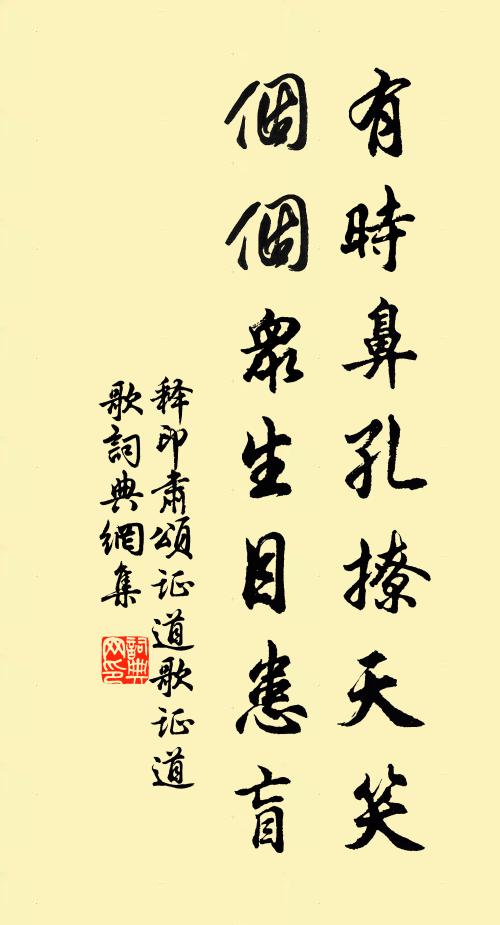 有時鼻孔撩天笑
個個眾生目患盲
释印肅頌证道歌证道
歌詞典網集
詞典網印